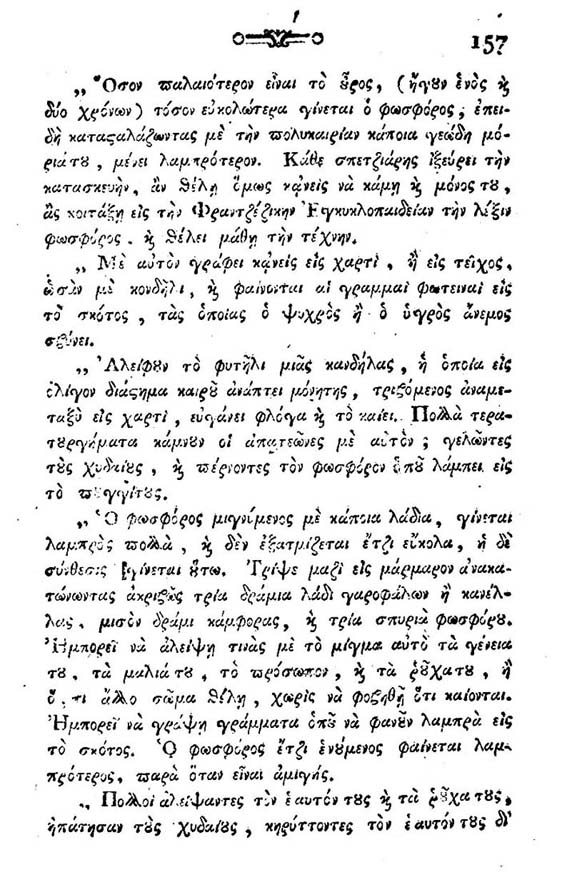 157
„ Ὅσον παλαιότερον εἶναι τὸ ȣ̓͂ρος, (ἤγȣν ἑνὸς ϗ
δύο χρόνων) τόσον εὐκολώτερα γίνεται ὁ φωσφόρος; ἐπει-
δὴ καταςαλάζωντας μὲ τὴν πολυκαιρίαν κάποια γεώδη μό-
ριά τȣ, μένει λαμπρότερον. Κάθε σπετζιάρης ἰξεύρει τὴν
κατασκευὴν, ἂν θέλῃ ὅμως κᾳνεὶς νὰ κάμῃ ϗ μόνος τȣ,
ἂς κοιτάξῃ εἰς τὴν Φραντζέζικην Ἐγκυκλοπαιδείαν τὴν λέξιν
φωσφόρος. ϗ θέλει μάθῃ τὴν τέχνην.
„ Μὲ αὐτὸν γράφει κᾳνεὶς εἰς χαρτὶ, ἢ εἰς τεῖχος,
ὡσὰν μὲ κονδῆλι, ϗ φαίνονται αἱ γραμμαὶ φωτειναὶ εἰς
τὸ σκότος, τὰς ὁποίας ὁ ψυχρὸς ἢ ὁ ὑγρὸς ἄνεμος
σβύνει.
„ Ἀλείφȣν τὸ φυτῆλι μιᾶς κανδήλας, ἡ ὁποία εἰς
ὀλίγον διάςημα καιρȣ͂ ἀνάπτει μόνητης, τριβόμενος ἀναμε-
ταξὺ εἰς χαρτὶ, εὐγάνει φλόγα ϗ τὸ καίει. Πολλὰ τερα-
τȣργήματα κάμνȣν οἱ ἀπατεῶνες μὲ αὐτὸν; γελῶντες
τȣ̀ς χυδαίȣς, ϗ πέρνοντες τὸν φωσφόρον ὁπȣ̃ λάμπει εἰς
τὸ
„ Ὁ φωσφόρος μιγνύμενος μὲ κάποια λάδια, γίνεται
λαμπρὸς πολλὰ, ϗ δὲν ἐξατμίζεται ἔτζι εὔκολα, ἡ δὲ
σύνθεσις γίνεται ȣ̔́τω. Τρίψε μαζὶ εἰς μάρμαρον ἀνακα-
τώνωντας ἀκριβῶς τρία δράμια λάδι γαροφάλων ἢ κανέλ-
λας, μισὸν δράμι κάμφορας, ϗ τρία σπυριὰ φωσφόρȣ.
Ἠμπορεῖ νὰ ἀλείψῃ τινὰς μὲ τὸ μίγμα αὐτὸ τὰ γένεια
τȣ, τὰ μαλιά τȣ, τὸ πρόσωπον, ϗ τὰ ῥȣ͂χα τȣ, ἢ
ὅ,τι ἄλλο σῶμα θέλῃ, χωρὶς νὰ φοβηθῇ ὅτι καίονται.
Ἠμπορεῖ νὰ γράψῃ γράμματα ὁπȣ̃ νὰ φανȣ͂ν λαμπρὰ εἰς
τὸ σκότος. Ὁ φωσφόρος ἔτζι ἑνȣ́μενος φαίνεται λαμ-
πρότερος, παρὰ ὅταν εἶναι ἀμιγής.
„ Πολλοὶ ἀλείψαντες τὸν ἑαυτόν τȣς ϗ τὰ ῥȣ͂χα τȣς,
ἠπάτησαν τȣ̀ς χυδαίȣς, κηρύττοντες τὸν ἑαυτόν τȣς δι'